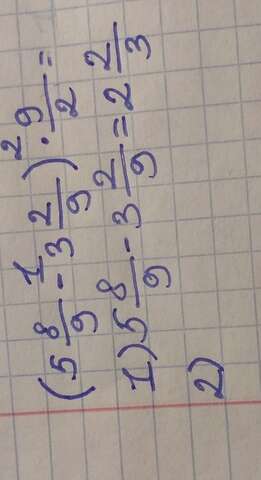 (5 8/9 - 3 2/9) · 9/2 =
1) 5 8/9 - 3 2/9 = 2 2/3
2)